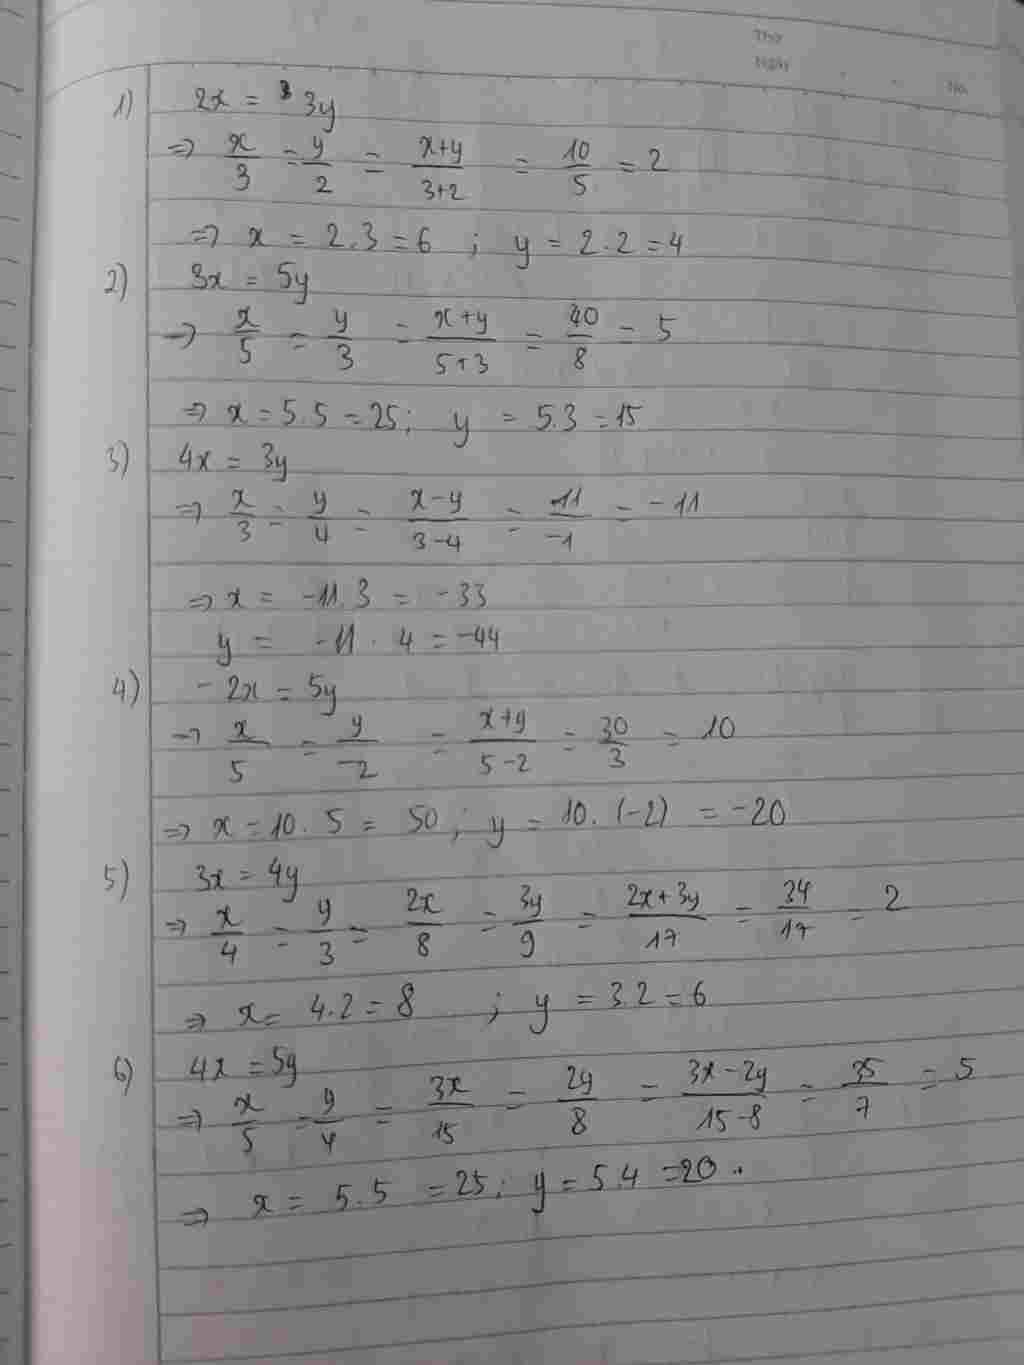 Thứ
Ngày No.
1) 2x = 3y
⇒ x/3 = y/2 = (x+y)/(3+2) = 10/5 = 2
⇒ x = 2.3 = 6 ; y = 2.2 = 4
2) 3x = 5y
→ x/5 = y/3 = (x+y)/(5+3) = 40/8 = 5
⇒ x = 5.5 = 25; y = 5.3 = 15
3) 4x = 3y
⇒ x/3 = y/4 = (x-y)/(3-4) = 11/-1 = -11
⇒ x = -11.3 = -33
y = -11.4 = -44
4) -2x = 5y
→ x/5 = y/-2 = (x+y)/(5-2) = 30/3 = 10
⇒ x = 10.5 = 50; y = 10.(-2) = -20
5) 3x = 4y
⇒ x/4 = y/3 = 2x/8 = 3y/9 = (2x+3y)/17 = 34/17 = 2
⇒ x = 4.2 = 8 ; y = 3.2 = 6
6) 4x = 5y
⇒ x/5 = y/4 = 3x/15 = 2y/8 = (3x-2y)/(15-8) = 35/7 = 5
⇒ x = 5.5 = 25; y = 5.4 = 20.